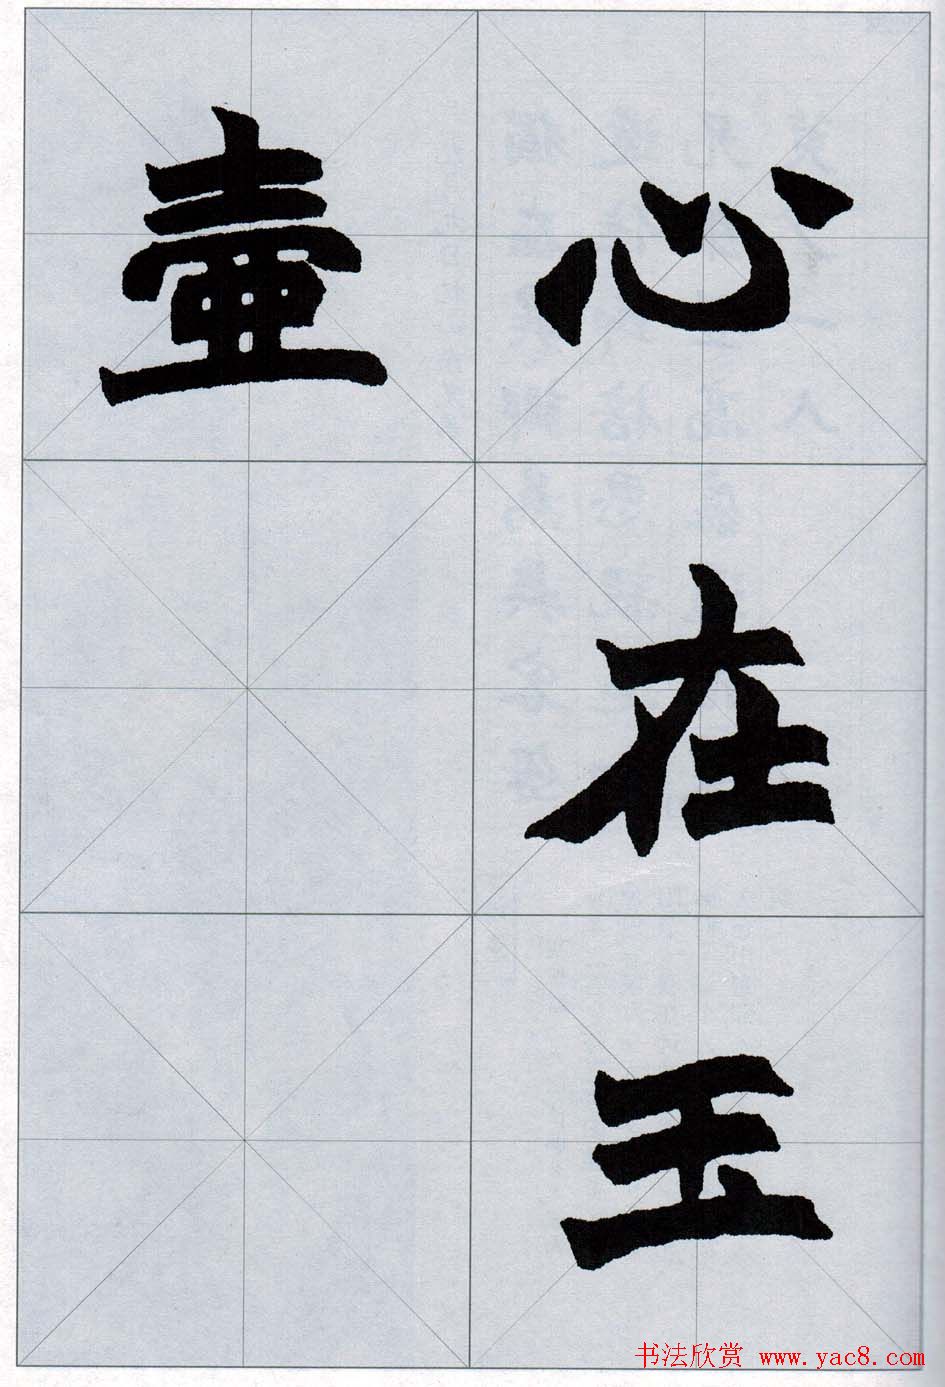 心在玉
壷
书法欣赏 www.yac8.com